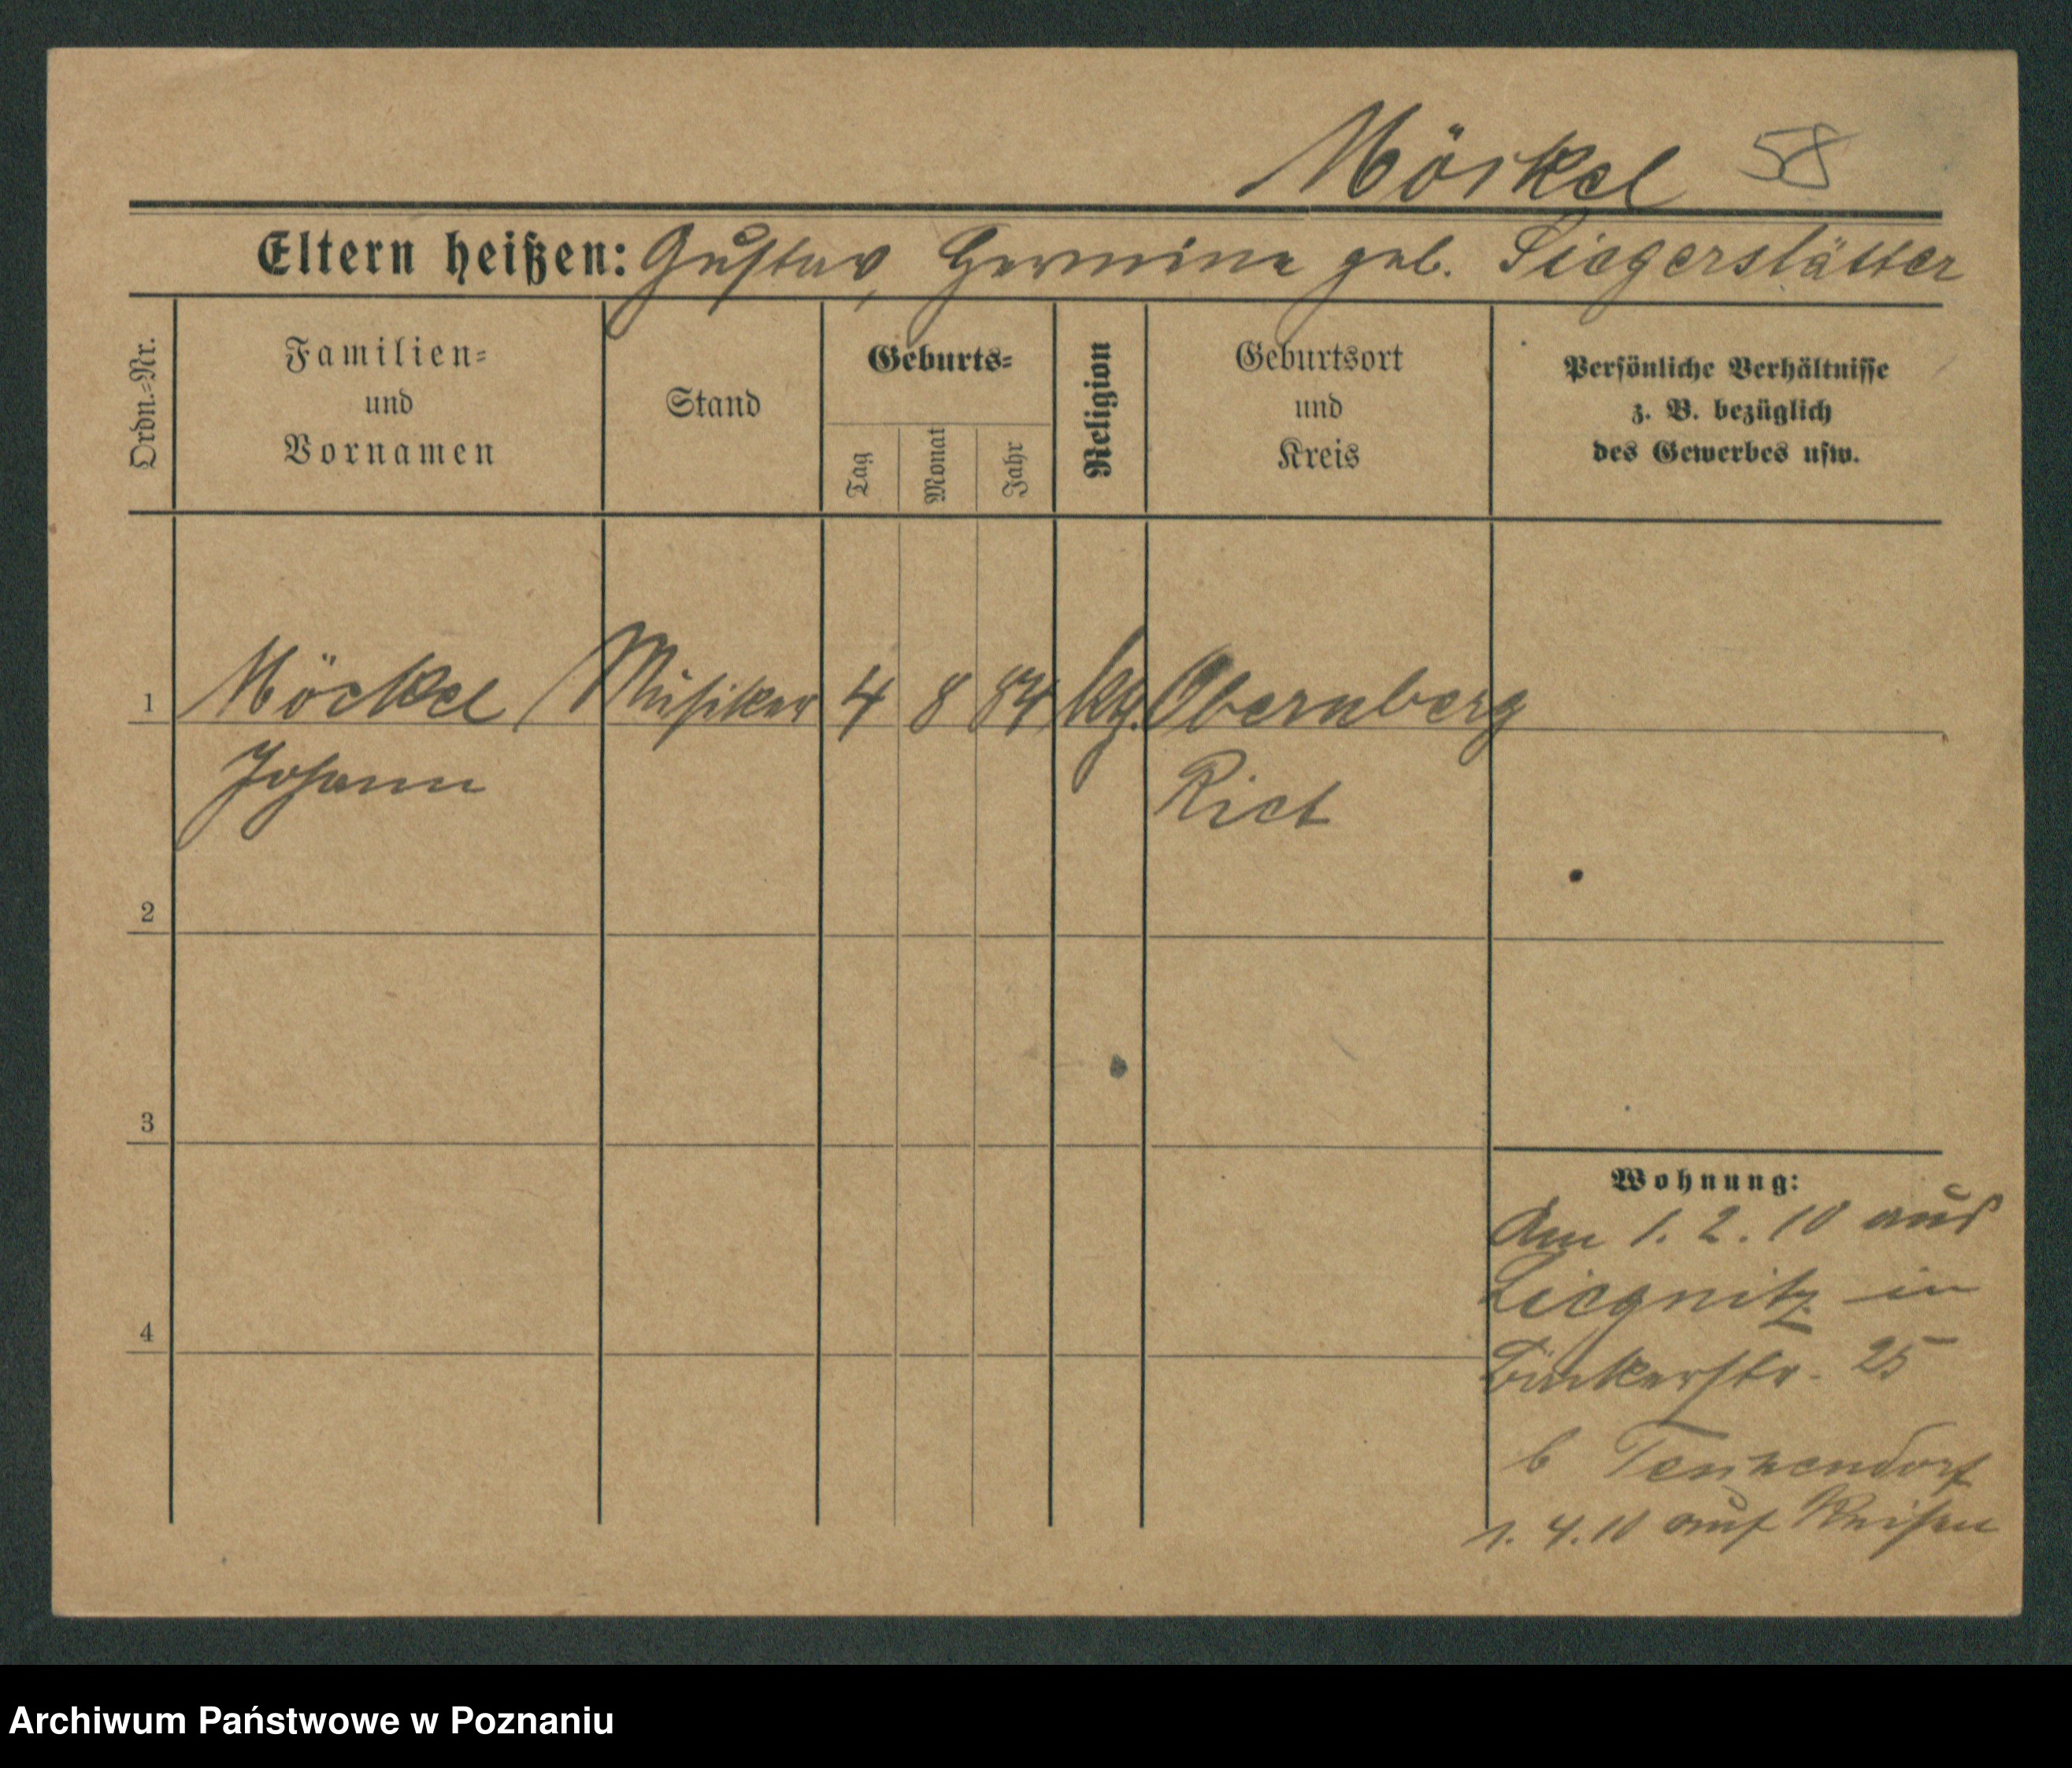 Möckel 58
Eltern heißen: Gustav, Hermine geb. Siegerstätter
Ordn.-Nr.
Familien-
und
Vornamen
Stand
Geburts-
Tag
Monat
Jahr
Religion
Geburtsort
und
Kreis
Persönliche Verhältnisse
z. B. bezüglich
des Gewerbes usw.
1 Möckel Musiker 4 8 84 Obernberg
Johann
Riet
2
3
4
Wohnung:
Am 1. 2. 10 aus
Liegnitz in
25
b
1. 4. 10 auf Reisen
Archiwum Państwowe w Poznaniu